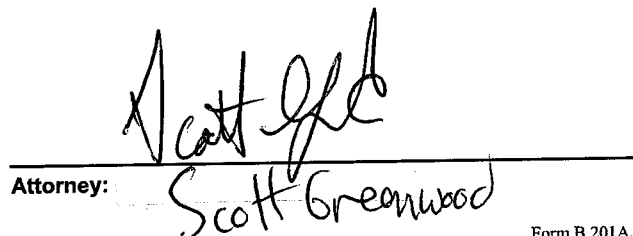 Scott
Attorney:
Scott Greenwood
Form B 201A,